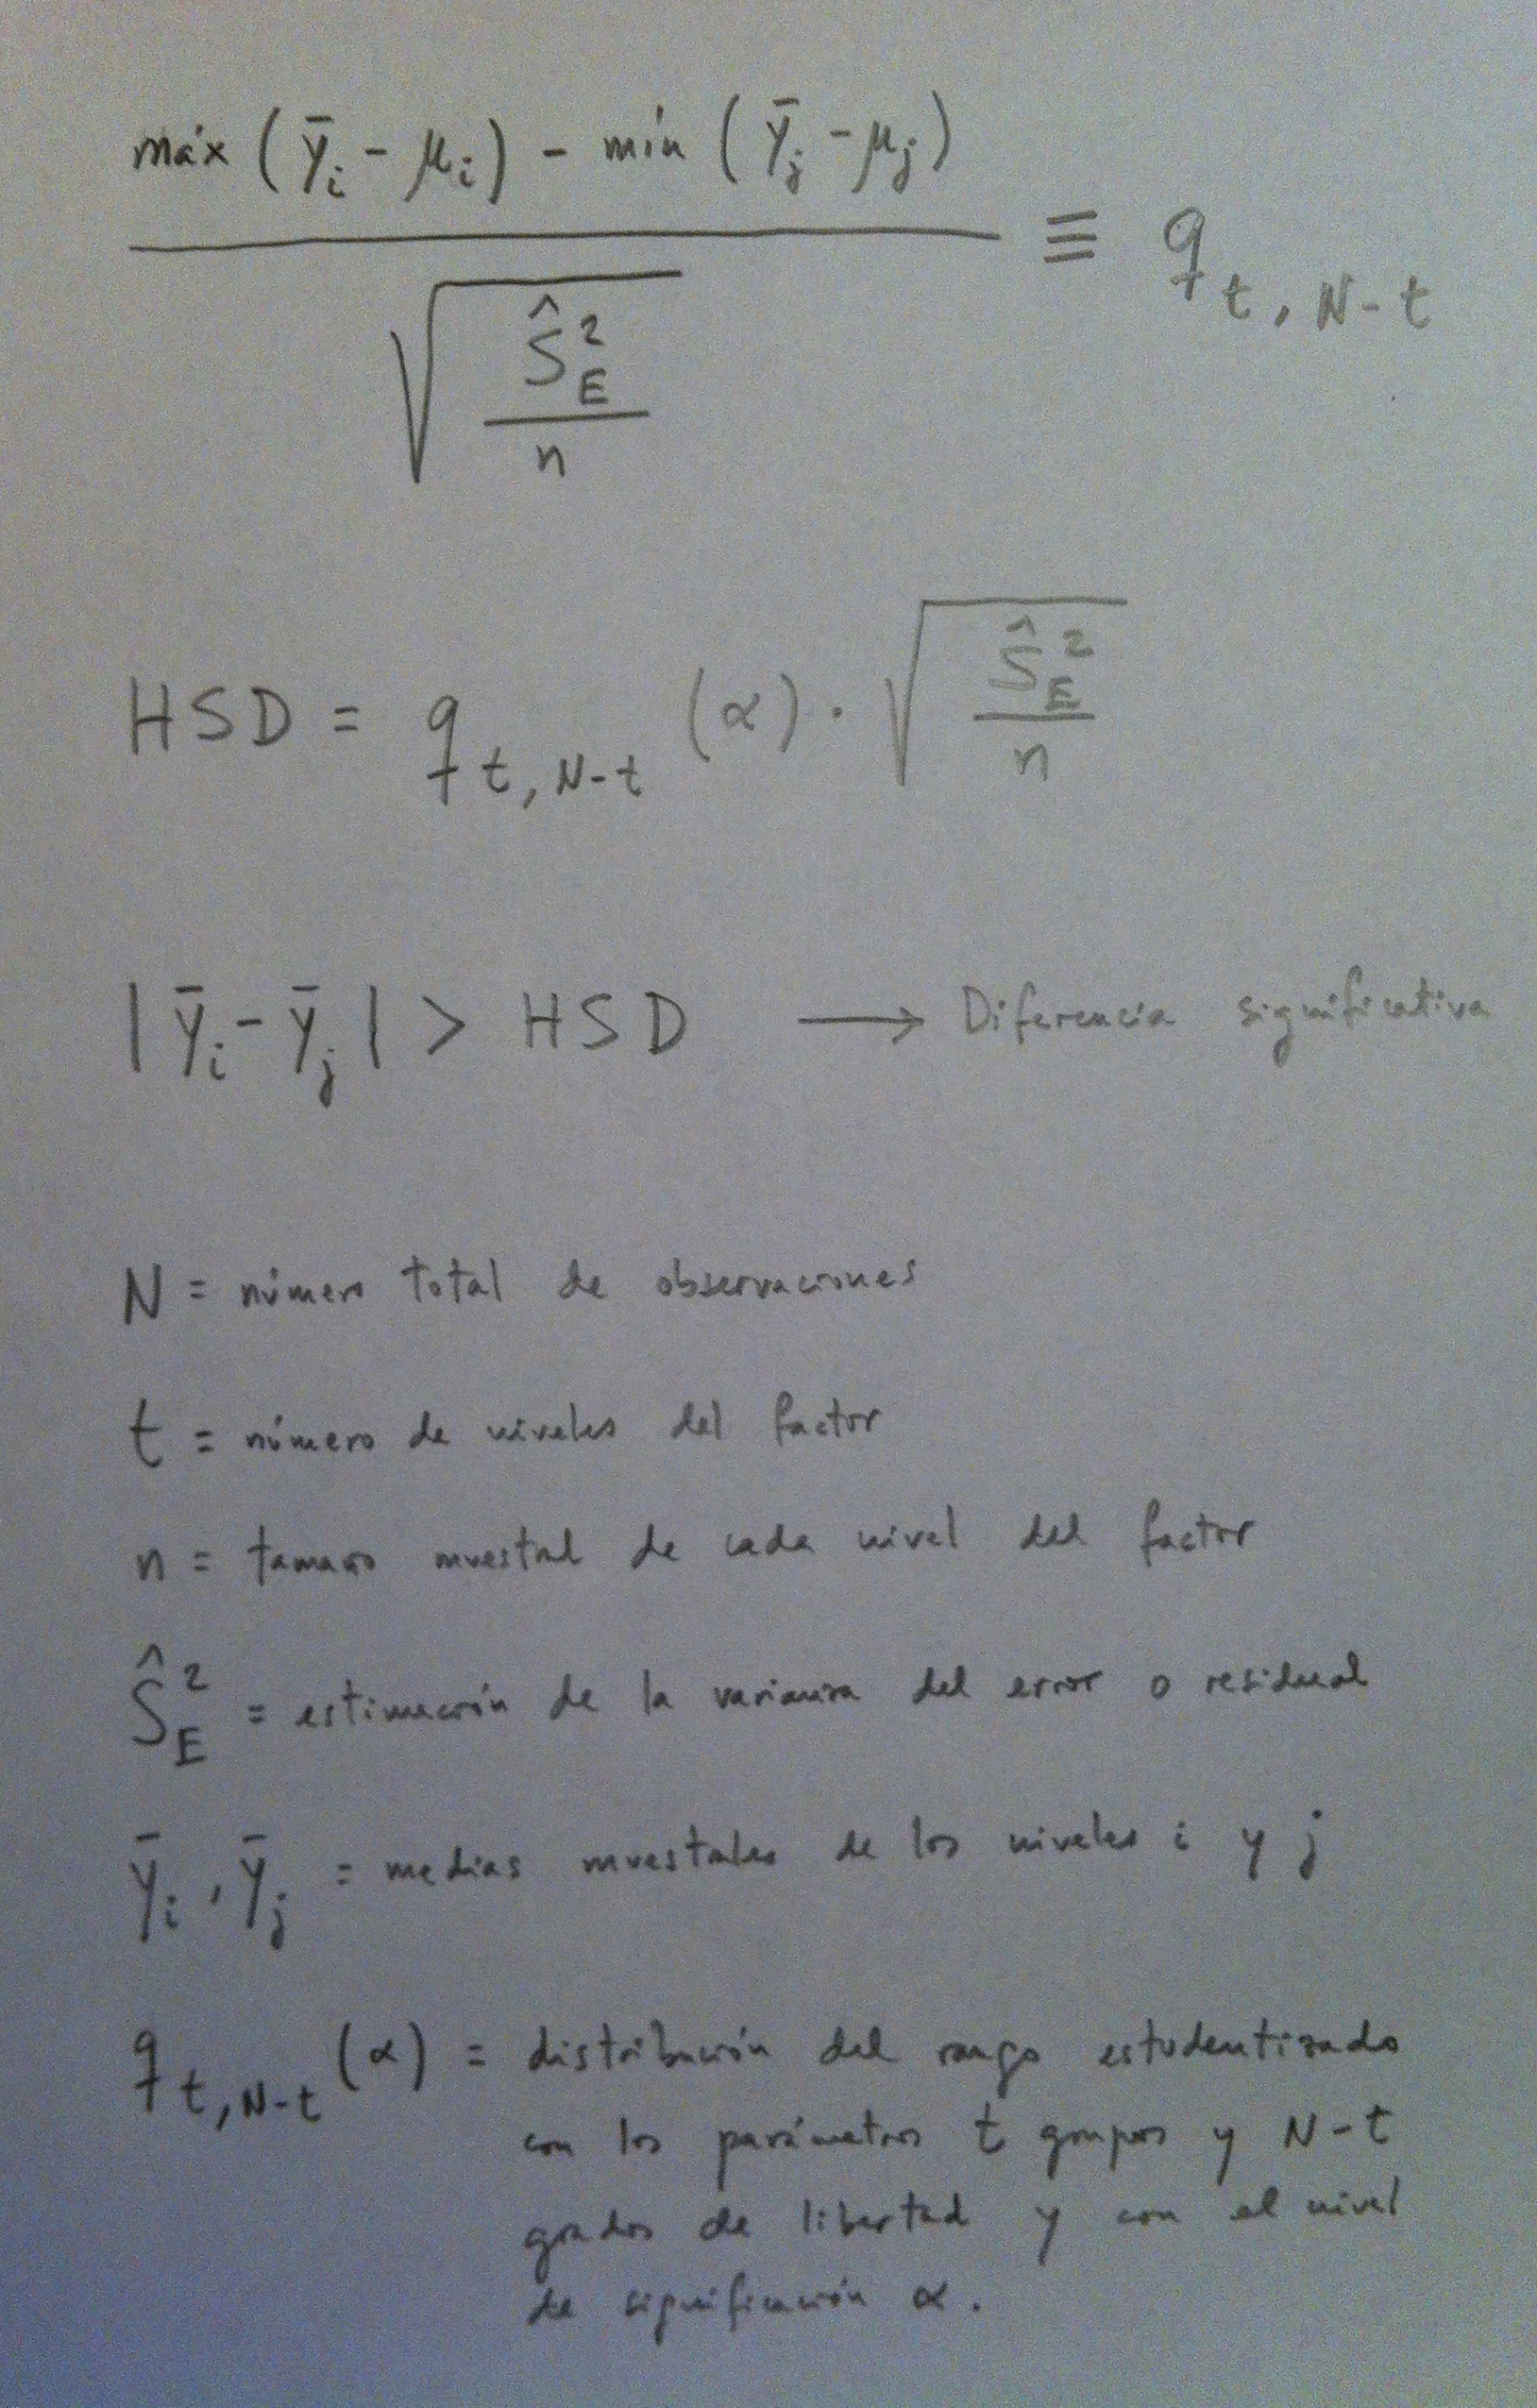 máx (ȳᵢ - μᵢ) - mín (ȳⱼ - μⱼ)
≡ q t, N-t
√ Ŝ²E
n
HSD = q t, N-t (α) · √ Ŝ²E / n
| ȳᵢ - ȳⱼ | > HSD → Diferencia significativa
N = número total de observaciones
t = número de niveles del factor
n = tamaño muestral de cada nivel del factor
Ŝ²E = estimación de la varianza del error o residual
ȳᵢ, ȳⱼ = medias muestrales de los niveles i y j
q t, N-t (α) = distribución del rango estudentizado
con los parámetros t grupos y N-t
grados de libertad y con el nivel
de significación α.